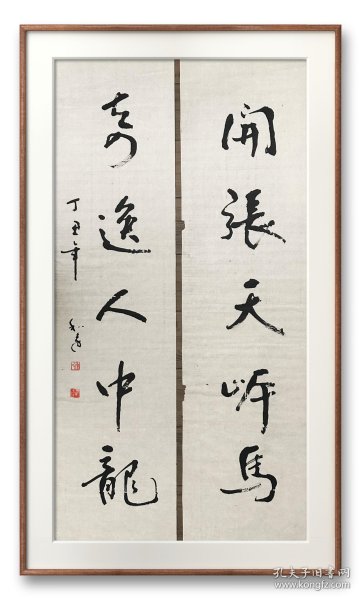 開張天岸馬
奇逸人中龍
丁丑年
孔夫子旧书网
www.kongfz.com